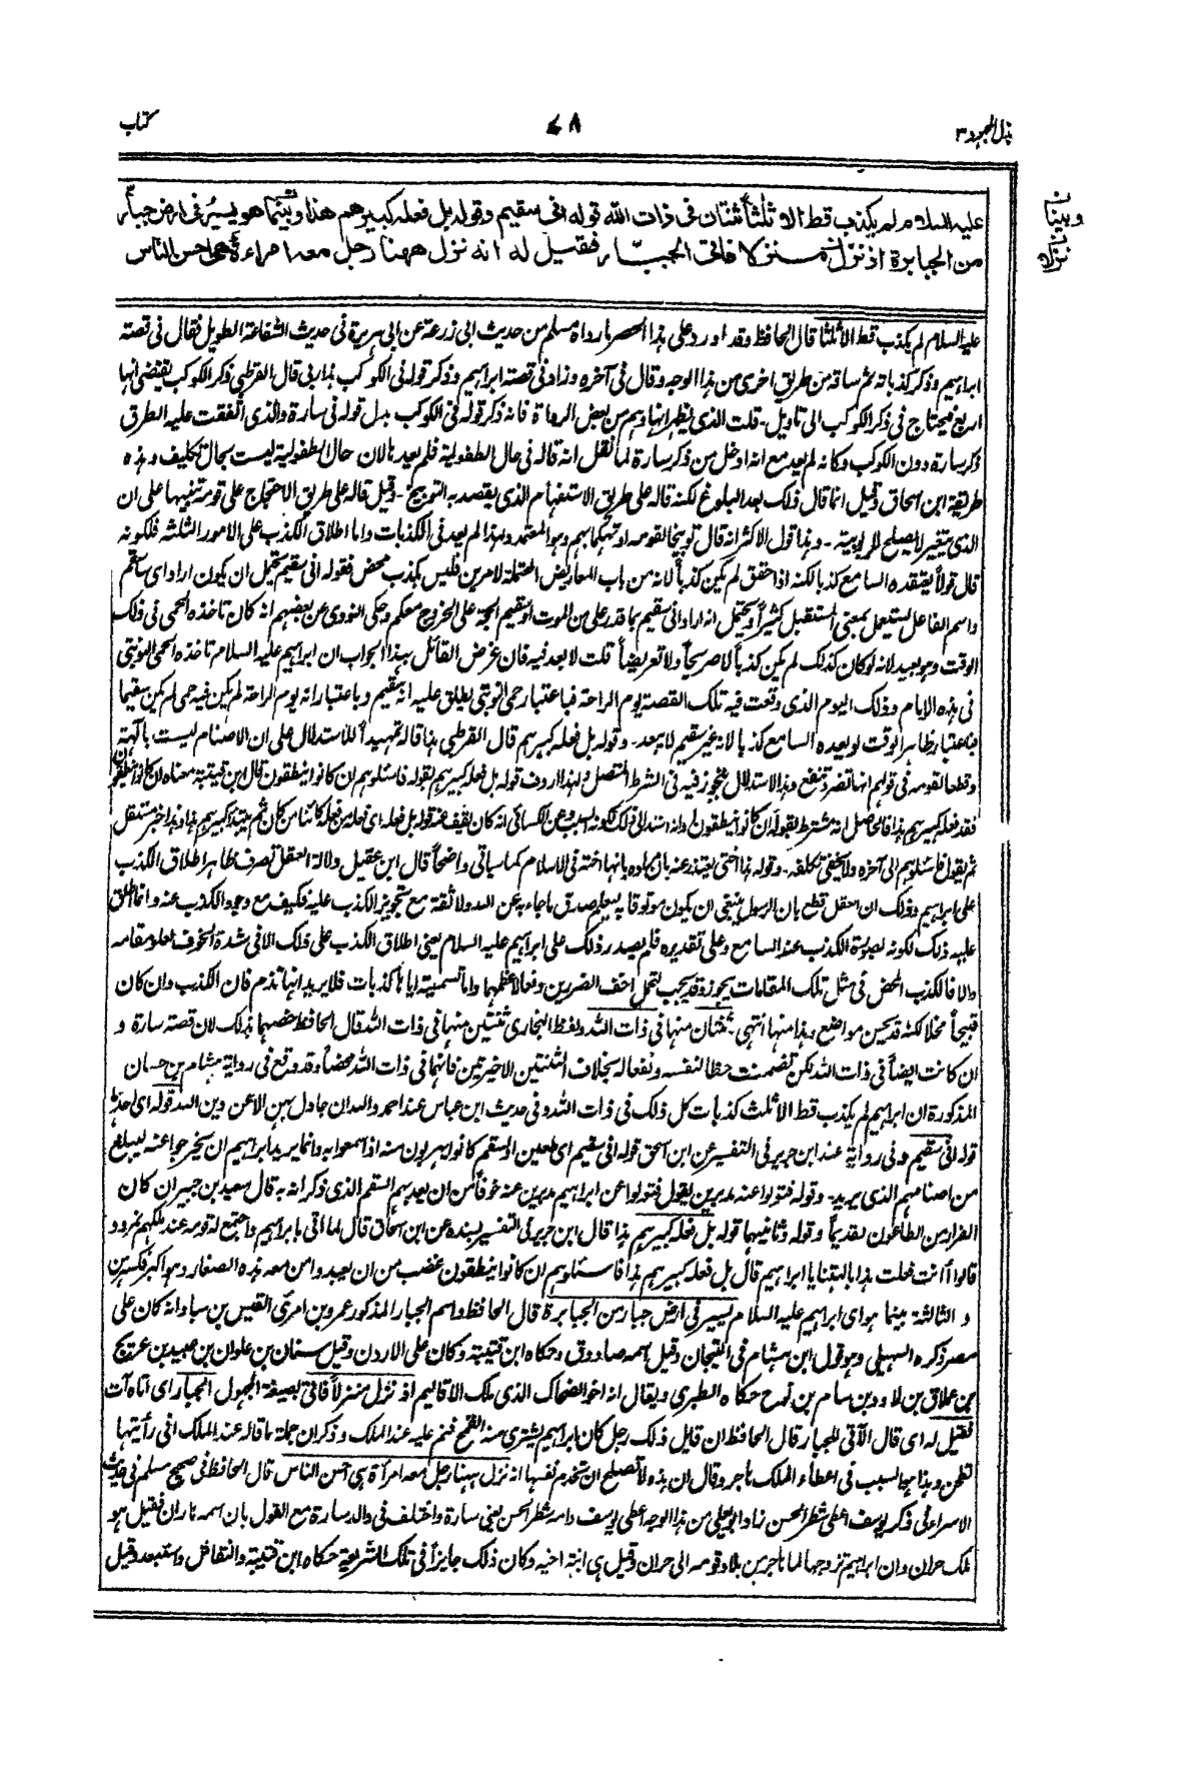 بذل المجهود ٣
٧٨
كتاب
عليه السلام لم يكذب قط الا ثلثاً ثنتان فى ذات الله قوله انى سقيم وقوله بل فعله كبيرهم هذا وبينما هو يسير فى ارض جبار
من الجبابرة اذ نزل منزلا فاتى الجبار فقيل له انه نزل ههنا رجل معه امراءة هى احسن الناس
وبينا ن
نزلا ن
عليه السلام لم يكذب قط الا ثلثا قال الحافظ وقد اورد على هذا الحصر ما رواه مسلم من حديث ابى زرعة عن ابى هريرة فى حديث الشفاعة الطويل فقال فى قصة
ابراهيم وذكر كذباته ثم ساقه من طريق اخرى من هذا الوجه وقال فى آخره وزاد فى قصة ابراهيم وذكر قوله فى الكوكب هذا ربى قال القرطبى ذكر الكوكب يقتضى انها
اربع فيحتاج فى ذكر الكوكب الى تاويل - قلت الذى يظهر انها وهم من بعض الرواة فانه ذكر قوله فى الكوكب بدل قوله فى سارة والذى اتفقت عليه الطرق
ذكر سارة دون الكوكب وكانه لم يعد مع انه ادخل من ذكر سارة لما نقل انه قاله فى حال الطفولية فلم يعدها لان حال الطفولية ليست بحال تكليف وهذه
طريقة ابن اسحاق وقيل انما قال ذلك بعد البلوغ لكنه قاله على طريق الاستفهام الذى يقصد به التوبيخ - وقيل قاله على طريق الاحتجاج على قومه تنبيها على ان
الذى يتغير لا يصلح للربوبية - وهذا قول الاكثر انه قال توبيخا لقومه او تهكما بهم وهو المعتمد ولهذا لم يعد فى الكذبات واما اطلاق الكذب على الامور الثلثة فلكونه
قال قولا يعتقده السامع كذبا لكنه اذا حقق لم يكن كذباً لانه من باب المعاريض المحتملة لامرين فليس بكذب محض فقوله انى سقيم يحتمل ان يكون اراد اى سأسقم
واسم الفاعل يستعمل بمعنى المستقبل كثيراً ويحتمل انه اراد انى سقيم بما قدر على من الموت او سقيم الحجة على الخروج معكم وحكى النووى عن بعضهم انه كان تاخذه الحمى فى ذلك
الوقت وهو بعيد لانه لو كان كذلك لم يكن كذباً لا صريحاً ولا تعريضاً قلت لا بعد فيه فان غرض القائل بهذا الجواب ان ابراهيم عليه السلام تاخذه الحمى النوبتى
فى هذه الايام وذلك اليوم الذى وقعت فيه تلك القصة يوم الراحة فباعتبار حمى النوبتى يطلق عليه انه سقيم وباعتبار انه يوم الراحة لم يكن فيه حمى لم يكن سقيما
فباعتبار ظاهر الوقت لو يعده السامع كذبا لانه غير سقيم لا يبعد - وقوله بل فعله كبيرهم قال القرطبى هذا قاله تمهيداً للاستدلال على ان الاصنام ليست بآلهة
وقطعا لقومه فى قولهم انها تضر وتنفع وهذا الاستدلال يتجوز فيه فى الشرط المتصل ولهذا اردف قوله بل فعله كبيرهم بقوله فاسئلوهم ان كانوا ينطقون قال ابن قتيبة معناه ان كانوا ينطقون
فقد فعله كبيرهم هذا فالحاصل انه مشترط بقوله ان كانوا ينطقون او انه اسند اليه ذلك لكونه السبب وعن الكسائى انه كان يقف عند قوله بل فعله اى فعله من فعله كائنا من كان ثم يبتدئ كبيرهم هذا وهذا خبر مستقل
ثم يقول فاسئلوهم الى آخره ولا يخفى تكلفه - وقوله هذا اختى يعتذر عنه بان مراده بانها اخته فى الاسلام كما سياتى واضحاً قال ابن عقيل دلالة العقل تصرف ظاهر اطلاق الكذب
على ابراهيم وذلك ان العقل قطع بان الرسول ينبغى ان يكون موثوقا به ليعلم صدق ما جاء به عن الله ولا ثقة مع تجويز الكذب عليه فكيف مع وجود الكذب عنه وانما اطلق
عليه ذلك لكونه بصورة الكذب عند السامع وعلى تقديره فلم يصدر ذلك على ابراهيم عليه السلام يعنى اطلاق الكذب على ذلك الا فى شدة الخوف لعلو مقامه
والا فالكذب المحض فى مثل تلك المقامات يجوز وقد يجب لتحمل اخف الضررين دفعا لاعظمها واما تسميته اياها كذبات فلا يريد انها تذم فان الكذب وان كان
قبيحاً مخلا لكنه قد يحسن مواضع وهذا منها انتهى - ثنتان منها فى ذات الله ولفظ البخارى ثنتين منها فى ذات الله قال الحافظ خصهما بذلك لان قصة سارة و
ان كانت ايضاً فى ذات الله لكن تضمنت حظا لنفسه ونفعا له بخلاف الثنتين الاخيرتين فانهما فى ذات الله محضاً وقد وقع فى رواية هشام بن حسان
المذكورة ان ابراهيم لم يكذب قط الا ثلث كذبات كل ذلك فى ذات الله وفى حديث ابن عباس عند احمد والله ان جادل بهن الا عن دين الله قوله اى احدها
قوله انى سقيم وفى رواية عند ابن جرير فى التفسير عن ابن اسحق قوله انى سقيم اى طعين او لسقم كانوا يهربون منه اذا سمعوا به وانما يريد ابراهيم ان يخرجوا عنه ليبلغ
من اصنامهم الذى يريد - وقوله فتولوا عنه مدبرين يقول فتولوا عن ابراهيم مدبرين عنه خوفاً من ان يعديهم السقم الذى ذكر انه به قال سعيد بن جبير ان كان
الفرار من الطاعون لقديماً وقوله وثانيها قوله بل فعله كبيرهم هذا قال ابن جرير فى التفسير بسنده عن ابن اسحاق قال لما اتى بابراهيم واجتمع له قومه عند ملكهم نمرود
قالوا أانت فعلت هذا بالهتنا يا ابراهيم قال بل فعله كبيرهم هذا فاسئلوهم ان كانوا ينطقون غضب من ان يعبدوا من معه هذه الصغار وهو اكبر فكسرهن
و الثالثة بينما هو اى ابراهيم عليه السلام يسير فى ارض جبار من الجبابرة قال الحافظ واسم الجبار المذكور عمرو بن امرئ القيس بن سبا وانه كان على
مصر ذكره السهيلى وهو قول ابن هشام فى التيجان وقيل اسمه صادوق وحكاه ابن قتيبة وكان على الاردن وقيل سنان بن علوان بن عبيد بن عريج
بن عملاق بن لاود بن سام بن نوح حكاه الطبرى ويقال انه اخو الضحاك الذى ملك الاقاليم اذ نزل منزلاً فاتى بصيغة المجهول الجبار اى اتاه آت
فقيل له اى قال الآتى للجبار قال الحافظ ان قايل ذلك رجل كان ابراهيم يشترى منه القمح فنم عليه عند الملك وذكر ان من جملة ما قاله عند الملك انى رأيتها
تطحن وهذا هو السبب فى اعطاء الملك هاجر وقال ان هذه لا تصلح ان تخدم نفسها انه نزل ههنا رجل معه امرأة هى احسن الناس قال الحافظ فى صحيح مسلم فى حديث
الاسراء فى ذكر يوسف اعطى شطر الحسن زاد ابو يعلى من هذا الوجه اعطى يوسف وامه شطر الحسن يعنى سارة واختلف فى والد سارة مع القول بان اسمه هاران فقيل هو
ملك حران وان ابراهيم تزوجها لما هاجر من بلاد قومه الى حران وقيل هى ابنة اخيه وكان ذلك جايزاً فى تلك الشريعة حكاه ابن قتيبة والنقاش واستبعد وقيل